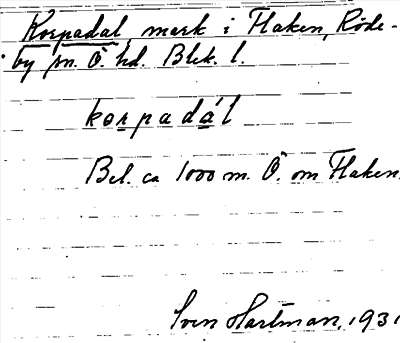 Korpadal, mark i Flaken, Röde-
by sn. Ö. hd. Blek. l.
korpadál
Bel. ca 1000 m. Ö. om Flaken.
Sven Hartman, 1931